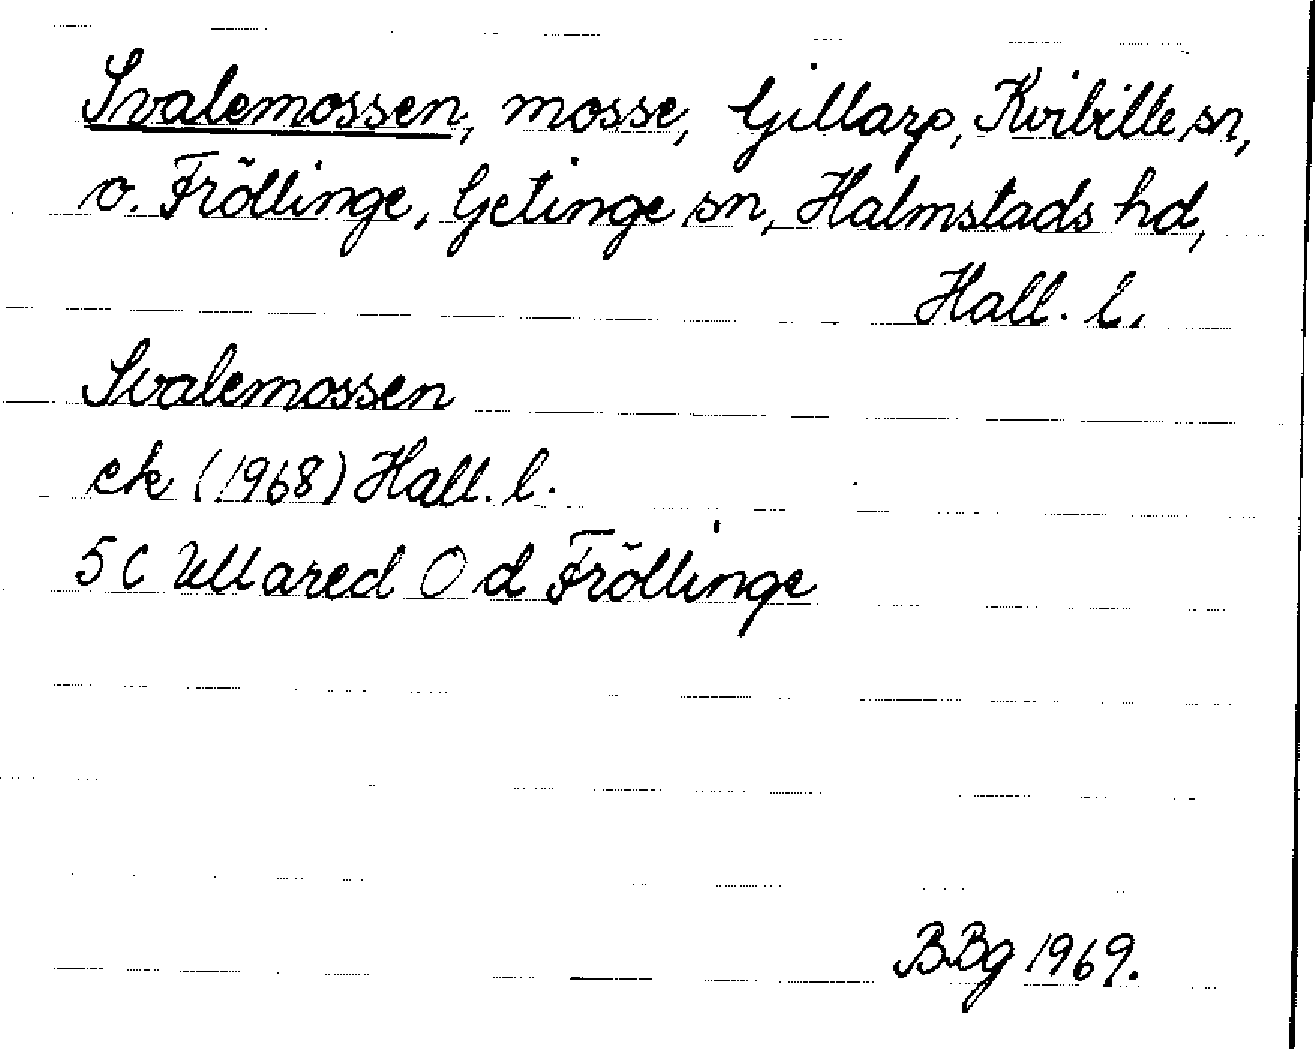 Svalemossen, mosse, Gillarp, Kvibille sn,
o. Fröllinge, Getinge sn, Halmstads hd,
Hall. l.
Svalemossen
ek (1968) Hall. l.
5C Ullared O d Fröllinge
BBg 1969.